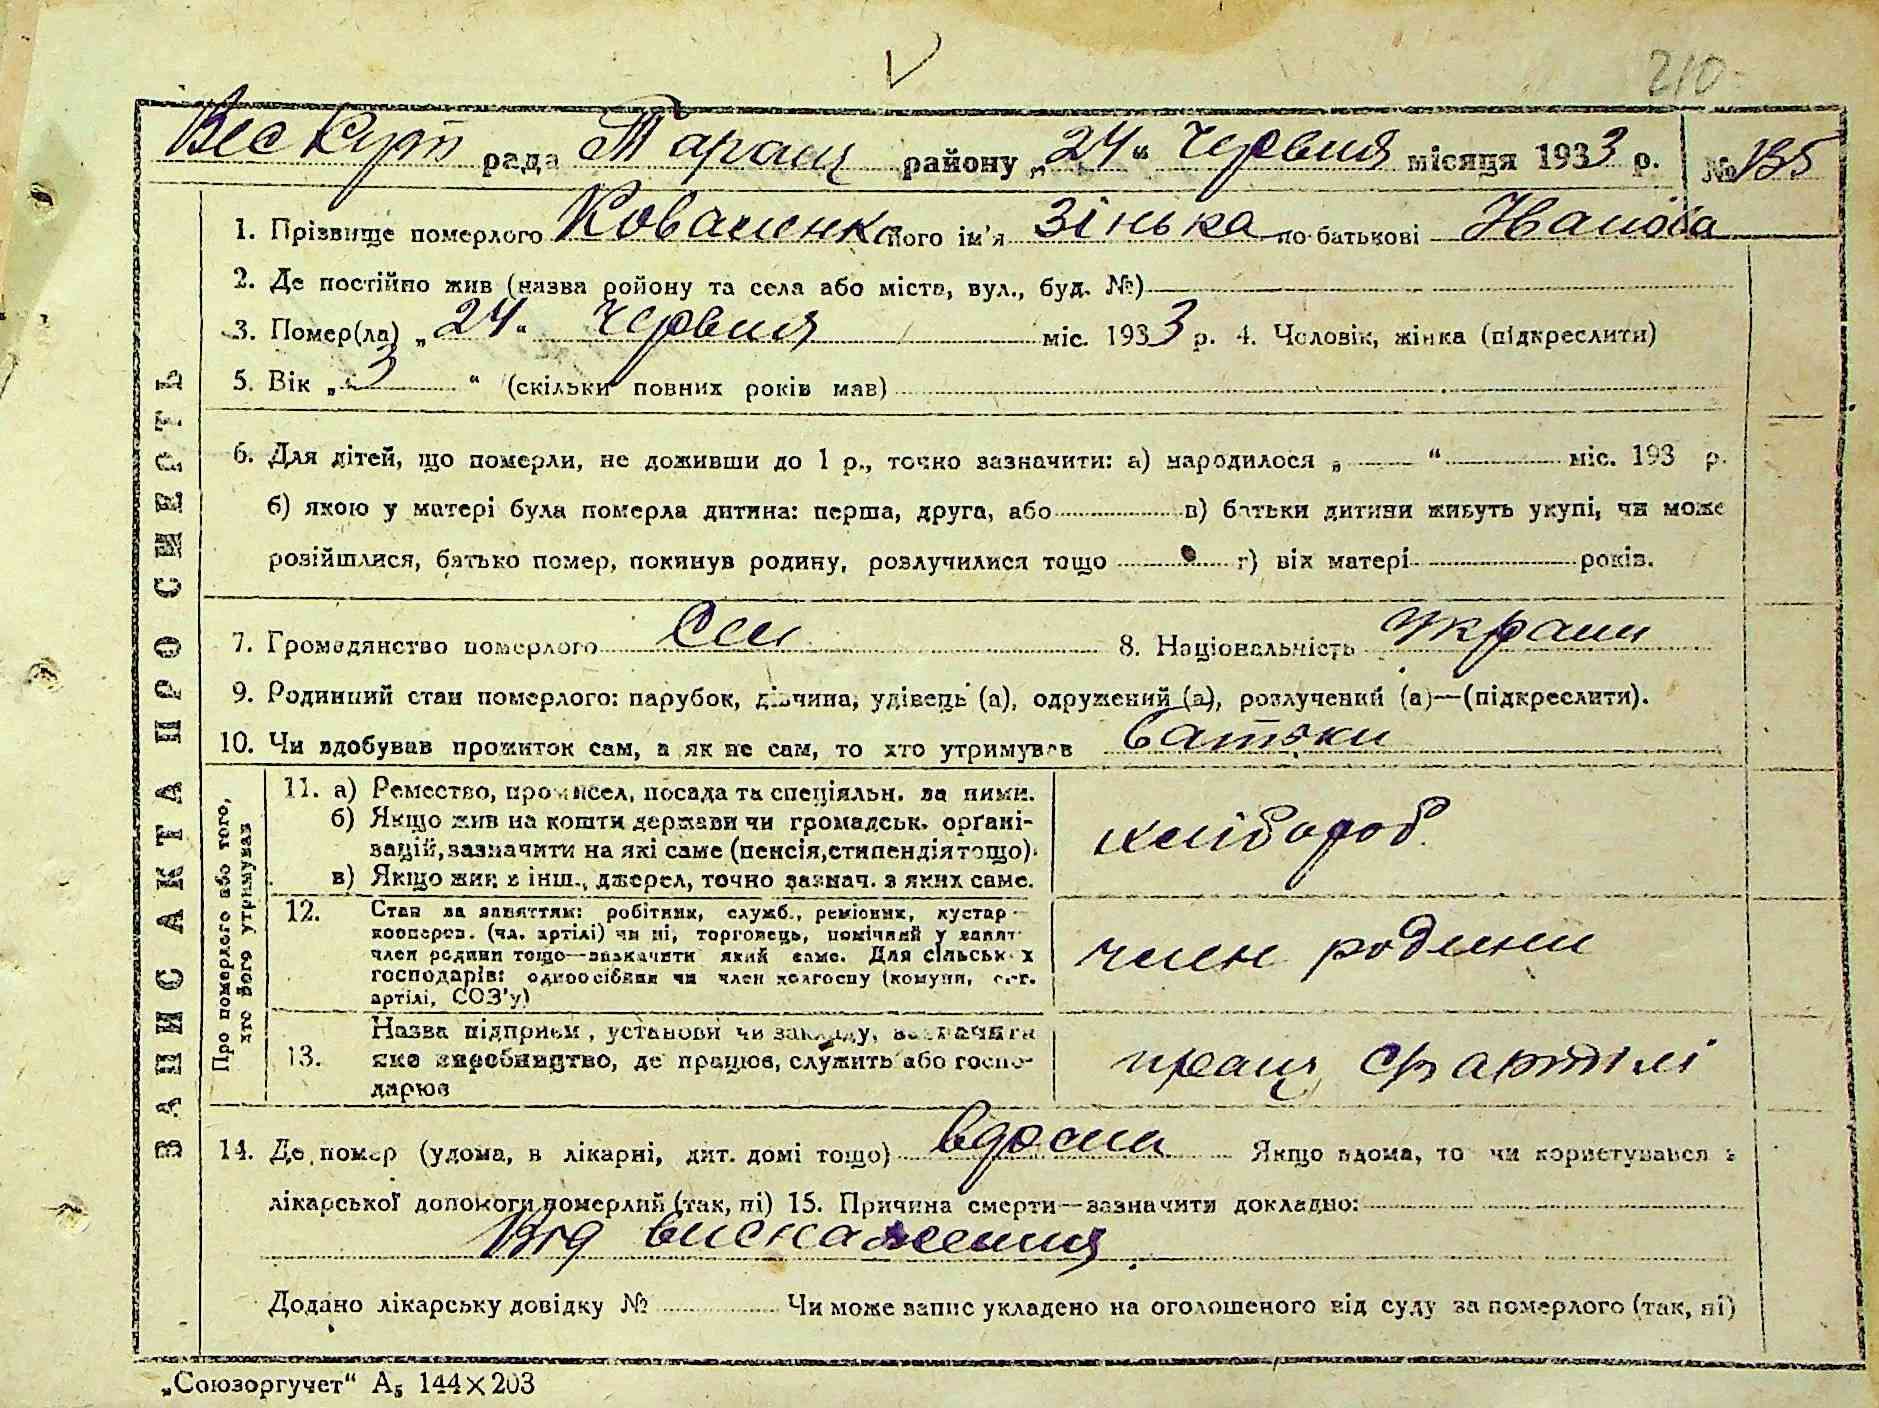 210
Вес Кут рада Таращ району „24“ Червня місяця 1933 р. № 135
1. Прізвище померлого Коваленко його ім'я Зінька по батькові Іванова
2. Де постійно жив (назва ройону та села або міста, вул., буд. №)
3. Помер(ла) „24“ Червня міс. 1933 р. 4. Чоловік, жінка (підкреслити)
5. Вік „3“ (скільки повних років мав)
6. Для дітей, що померли, не доживши до 1 р., точно зазначити: а) народилося „ “ міс. 193 р.
б) якою у матері була померла дитина: перша, друга, або в) батьки дитини живуть укупі, чи може
розійшлися, батько помер, покинув родину, розлучилися тощо г) вік матері років.
7. Громадянство померлого ССС 8. Національність Україн
9. Родинний стан померлого: парубок, дівчина, удівець (а), одружений (а), розлучений (а)—(підкреслити).
10. Чи здобував прожиток сам, а як не сам, то хто утримував батьки
ЗАПИС АКТА ПРО СМЕРТЬ
Про померлого або того, хто його утримував
11. а) Ремество, промисел, посада та спеціяльн. за ними.
б) Якщо жив на кошти держави чи громадськ. органі-
зацій, зазначити на які саме (пенсія, стипендія тощо).
в) Якщо жив з інш., джерел, точно зазнач. з яких саме.
хлібороб
12. Стан за заняттям: робітник, служб., ремісник, кустар
коопєров. (чл. артілі) чи ні, торговець, помічний у занят
член родини тощо—зазначити який саме. Для сільськ х
господарів: одноосібник чи член колгоспу (комуни, с.-г.
артілі, СОЗ'у)
член родини
13. Назва підприєм, установи чи закладу, зазначити
яке виробництво, де працює, служить або госпо-
дарює
працю с/г артілі
14. Де помер (удома, в лікарні, дит. домі тощо) вдома Якщо вдома, то чи користувався з
лікарської допомоги померлий (так, ні) 15. Причина смерти—зазначити докладно:
Від виснаження
Додано лікарську довідку № Чи може запис укладено на оголошеного від суду за померлого (так, ні)
„Союзоргучет“ А5 144×203